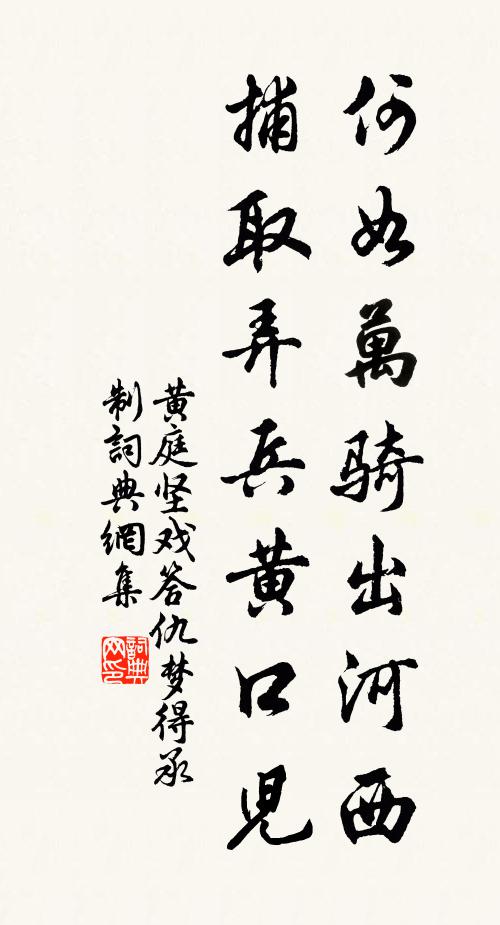 何如萬騎出河西
捕取弄兵黄口兒
黄庭坚戏答仇梦得承
制詞典網集
詞典网印